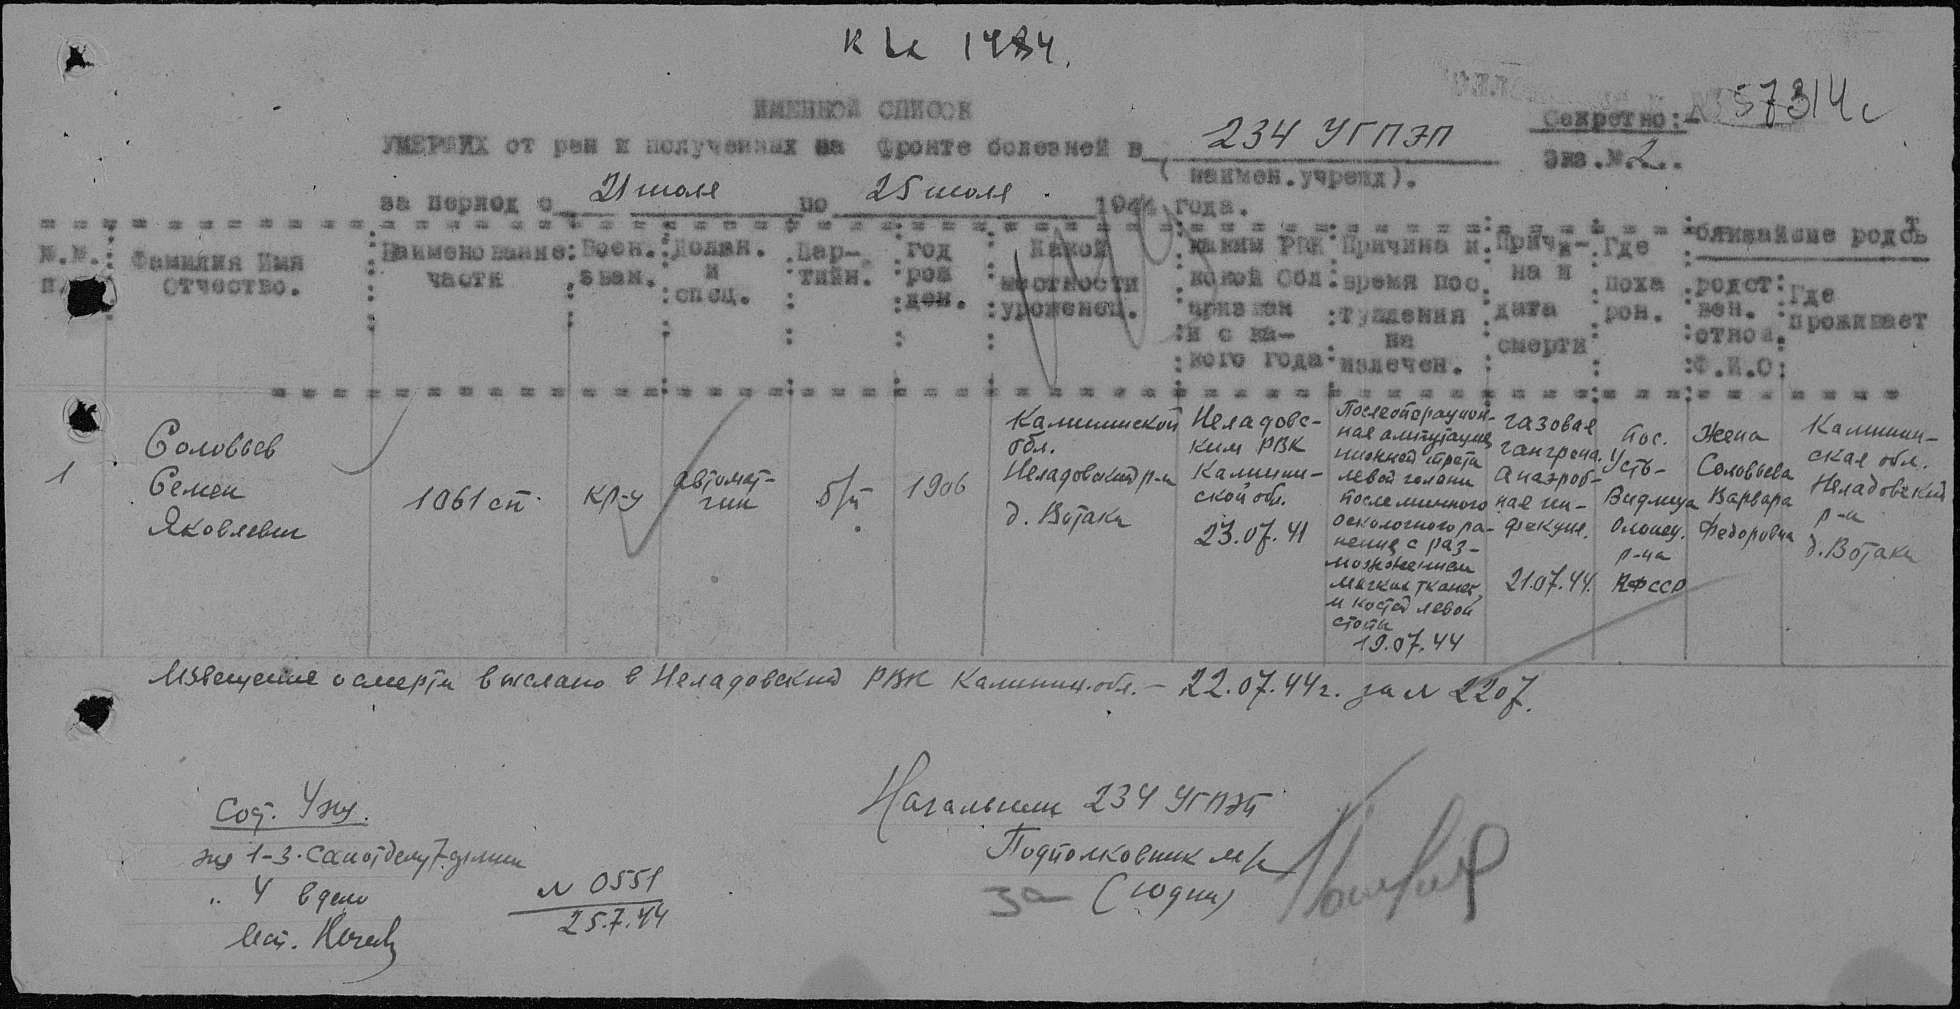 К вх 1484.
№ 57314с
ИМЕННОЙ СПИСОК
Секретно:
УМЕРШИХ от ран и полученных на фронте болезней в 234 УГПЭП
Экз.№ 2..
(наимен.учрежд).
за период с 21 июля по 25 июля 1944 года.
№.№. п.
Фамилия Имя Отчество.
Наименование части
Воен. зван.
Должн. и спец.
Пар- тийн.
год рож ден.
Какой местности уроженец.
каким РВК какой Обл призван и с ка- кого года
Причина и время пос тупления на излечен.
Причи- на и дата смерти
Где поха рон.
ближайшие родст
родст вен. отнош. Ф.И.О.
Где проживает
1
Соловьев
Семен
Яковлевич
1061 сп
кр-ц
автомат-
чик
б/п
1906
Калининской
обл.
Нелидовский р-н
д. Ботаки
Нелидовс-
ким РВК
Калинин-
ской обл.
23.07.41
Послеоперацион-
ная ампутация
нижней трети
левой голени
после минного
осколочного ра-
нения с раз-
мозжением
мягких тканей
и костей левой
стопы
19.07.44
газовая
гангрена.
Анаэроб-
ная ин-
фекция.
21.07.44.
пос.
Усть-
Видлица
Олонец.
р-на
КФССР
Жена
Соловьева
Варвара
Федоровна
Калинин-
ская обл.
Нелидовский
р-н
д. Ботаки
Извещение о смерти выслано в Нелидовский РВК Калинин.обл. - 22.07.44г. за № 2207.
Начальник 234 УГПЭП
Подполковник м/с
за (Юдин)
экз 1-3. Санотделу 7 армии
„ 4 в дело
№ 0551
25.7.44